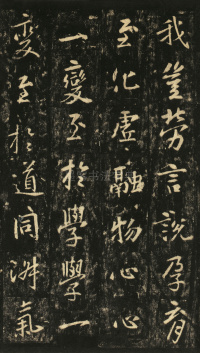 我豈勞言說孕育
至化虛融物心心
一變至於學學一
變至於道同渊氣